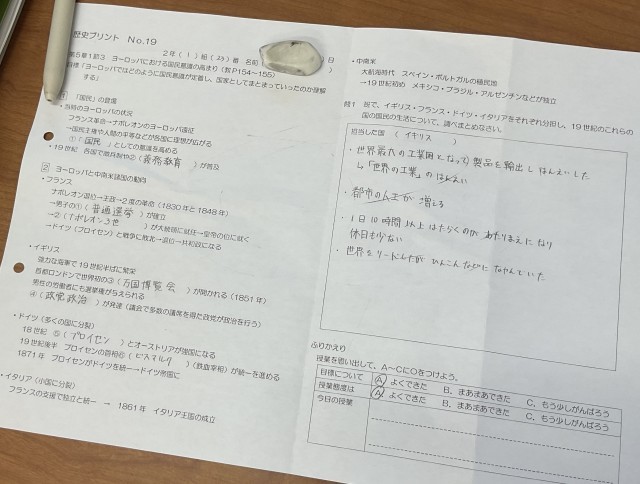 歴史プリント No.19
2年（1）組（23）番 名前
第5章1節3 ヨーロッパにおける国民意識の高まり（教P154～155）
目標「ヨーロッパではどのように国民意識が定着し、国家としてまとまっていったのか理解
する」
1 「国民」の登場
・当時のヨーロッパの状況
フランス革命→ナポレオンのヨーロッパ遠征
→国民主権や人間の平等などが各国に理想が広がる
①「国民」としての意識を高める
・19世紀 各国で徴兵制や②（義務教育）が普及
2 ヨーロッパと中南米諸国の動向
・フランス
ナポレオン退位→王政→2度の革命（1830年と1848年）
→男子の①（普通選挙）が確立
→②（ナポレオン3世）が大統領に就任→皇帝の位に就く
→ドイツ（プロイセン）と戦争に敗北→退位→共和政になる
・イギリス
強力な海軍で19世紀半ばに繁栄
首都ロンドンで世界初の③（万国博覧会）が開かれる（1851年）
男性の労働者にも選挙権が与えられる
④（政党政治）が発達（議会で多数の議席を得た政党が政治を行う）
・ドイツ（多くの国に分裂）
18世紀 ⑤（プロイセン）とオーストリアが強国になる
19世紀後半 プロイセンの首相⑥（ビスマルク）（鉄血宰相）が統一を進める
1871年 プロイセンがドイツを統一→ドイツ帝国に
・イタリア（小国に分裂）
フランスの支援で独立と統一 → 1861年 イタリア王国の成立
・中南米
大航海時代 スペイン・ポルトガルの植民地
→19世紀初め メキシコ・ブラジル・アルゼンチンなどが独立
問1 班で、イギリス・フランス・ドイツ・イタリアをそれぞれ分担し、19世紀のこれらの
国の国民の生活について、調べまとめなさい。
担当した国（イギリス）
・世界最大の工業国となって製品を輸出しはんえいした
↳「世界の工業」のはんえい
・都市の人工が増える
・1日10時間以上はたらくのがあたりまえになり
休日も少ない
・世界をリードしたがひんこんなどになやんでいた
ふりかえり
授業を思い出して、A～Cに○をつけよう。
目標について A よくできた B、まあまあできた C、もう少しがんばろう
授業態度は A よくできた B、まあまあできた C、もう少しがんばろう
今日の授業